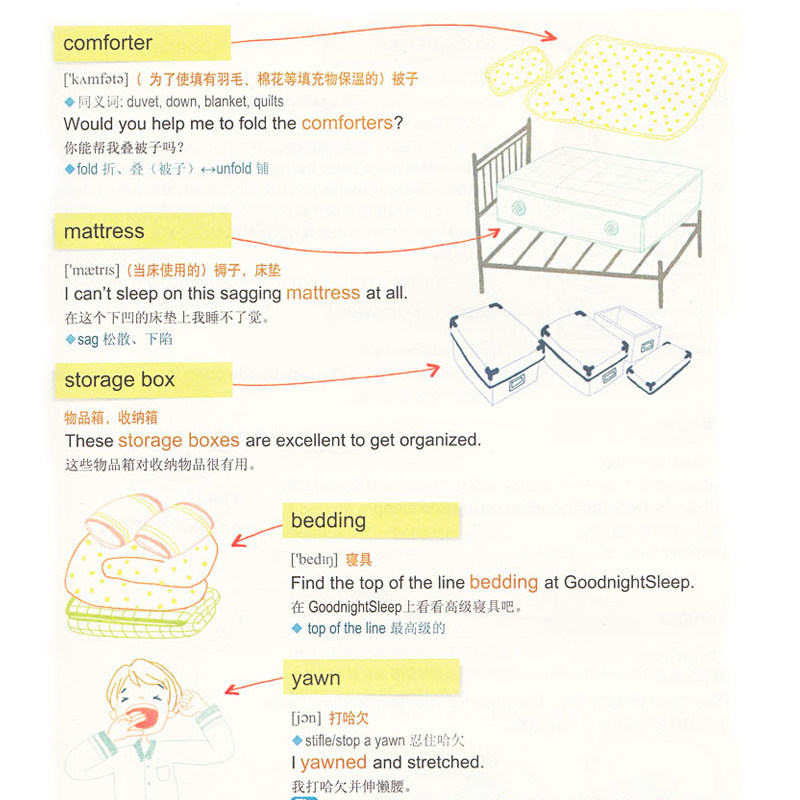 comforter
['kʌmfətə]（为了使填有羽毛、棉花等填充物保温的）被子
◆同义词: duvet, down, blanket, quilts
Would you help me to fold the comforters?
你能帮我叠被子吗？
◆fold 折、叠（被子）↔unfold 铺
mattress
['mætrɪs]（当床使用的）褥子，床垫
I can't sleep on this sagging mattress at all.
在这个下凹的床垫上我睡不了觉。
◆sag 松散、下陷
storage box
物品箱，收纳箱
These storage boxes are excellent to get organized.
这些物品箱对收纳物品很有用。
bedding
['bedɪŋ] 寝具
Find the top of the line bedding at GoodnightSleep.
在 GoodnightSleep上看看高级寝具吧。
◆ top of the line 最高级的
yawn
[jɔn] 打哈欠
◆stifle/stop a yawn 忍住哈欠
I yawned and stretched.
我打哈欠并伸懒腰。